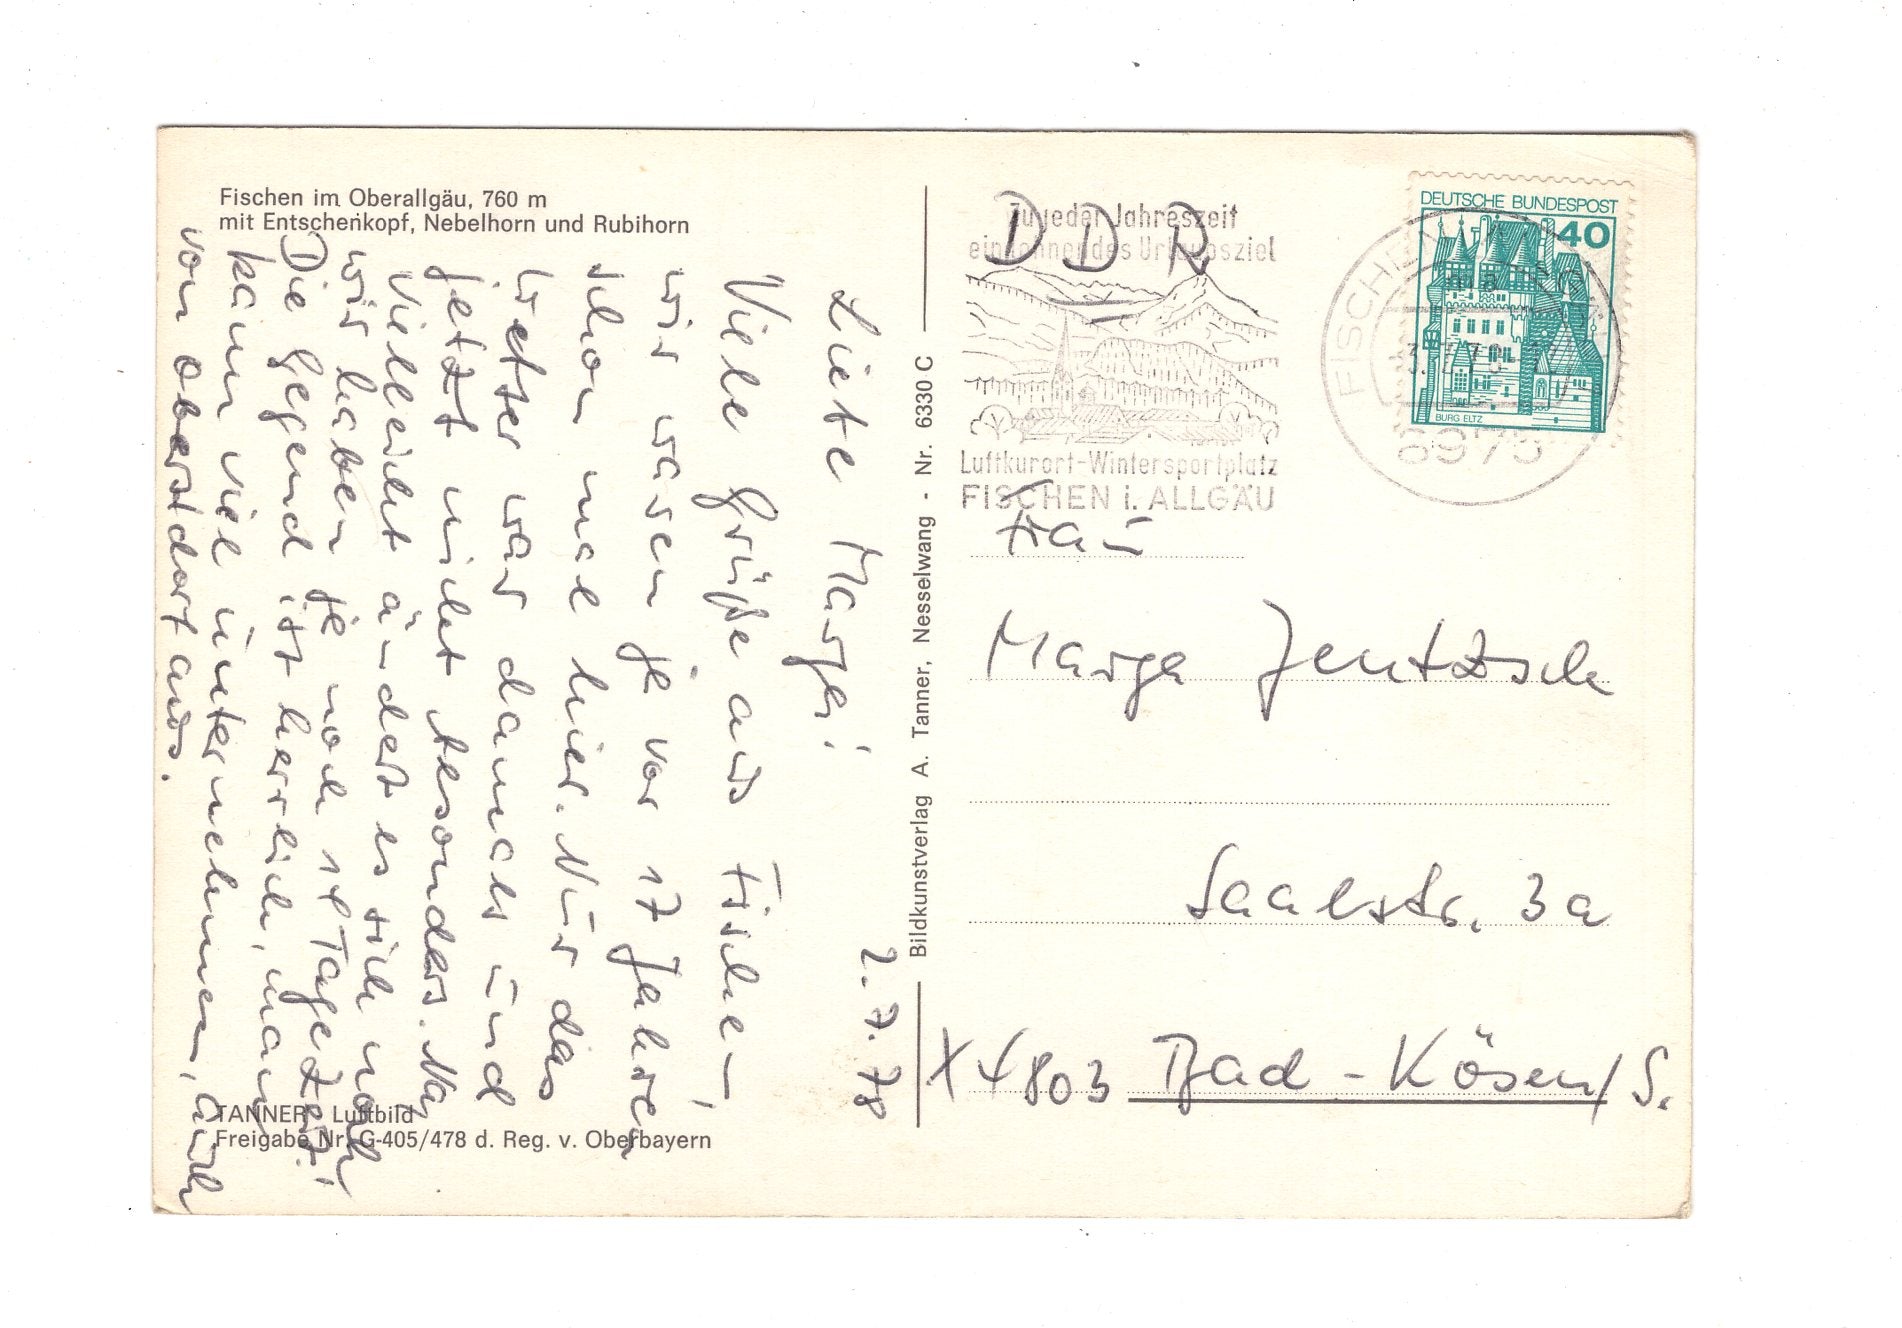 Fischen im Oberallgäu, 760 m
mit Entschenkopf, Nebelhorn und Rubihorn
2. 7. 78
Liebe Marga!
Viele Grüße aus Fischen,
wir waren ja vor 17 Jahren
schon mal hier. Nur das
Wetter war damals und
jetzt nicht besonders. Na,
vielleicht ändert es sich noch
wir haben ja noch 14 Tage Zeit!
Die Gegend ist herrlich, man
kann viel unternehmen, auch
von oberstdorf aus.
TANNER Luftbild
Freigabe Nr. G-405/478 d. Reg. v. Oberbayern
Bildkunstverlag A. Tanner, Nesselwang - Nr. 6330 C
DDR
Zu jeder Jahreszeit
ein lohnendes Urlaubsziel
Luftkurort-Wintersportplatz
FISCHEN i. ALLGÄU
DEUTSCHE BUNDESPOST
40
BURG ELTZ
FISCHEN
8975
Frau
Marga Jentzsch
Saalestr. 3a
X 4803 Bad-Kösen/S.